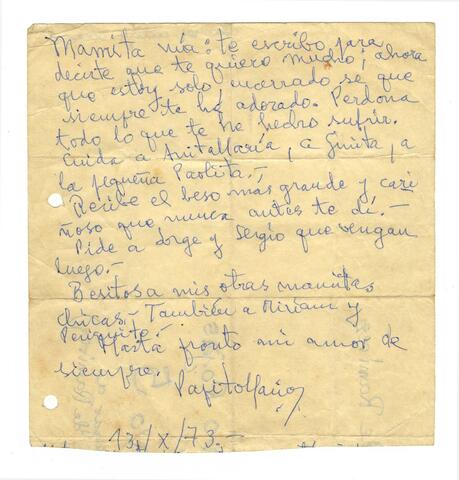 Mamita mía: te escribo para
decirte que te quiero mucho; ahora
que estoy solo, encerrado se que
siempre te he adorado. Perdona
todo lo que te he hecho sufrir.
Cuida a AnitaMaría, a a
la pequeña Paolita.-
Recibe el beso más grande y cari
ñoso que nunca antes te di.-
Pide a Jorge y Sergio que vengan
luego.-
Besitos a mis otras mamitas
chicas.- También a Miriam y
Periquito.-
Hasta pronto mi amor de
siempre.
PapitoMario
13/X/73.-